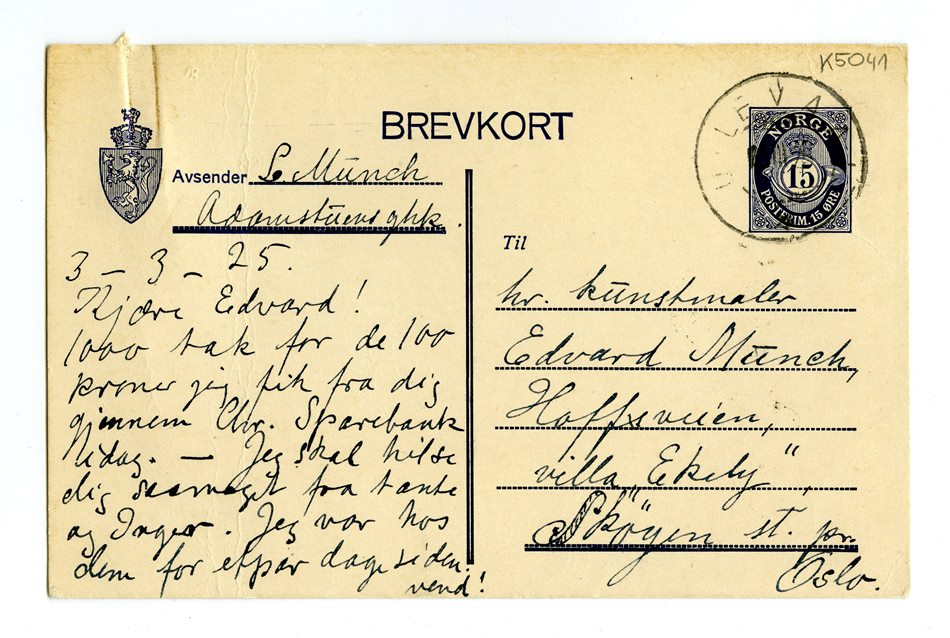 K5041
BREVKORT
NORGE
15
POSTFRIM. 15 ØRE
Avsender L. Munch
Adamstuens ghk.
3 – 3 – 25.
Kjære Edvard!
1000 tak for de 100
kroner jeg fik fra dig
gjennem Chr. Sparebank
idag. — Jeg skal hilse
dig saameget fra tante
og Inger. Jeg var hos
dem for etpar dage siden.
vend!
Til
hr. kunstmaler
Edvard Munch,
Hoffsveien,
villa „Ekely",
Skøyen st. pr.
Oslo.